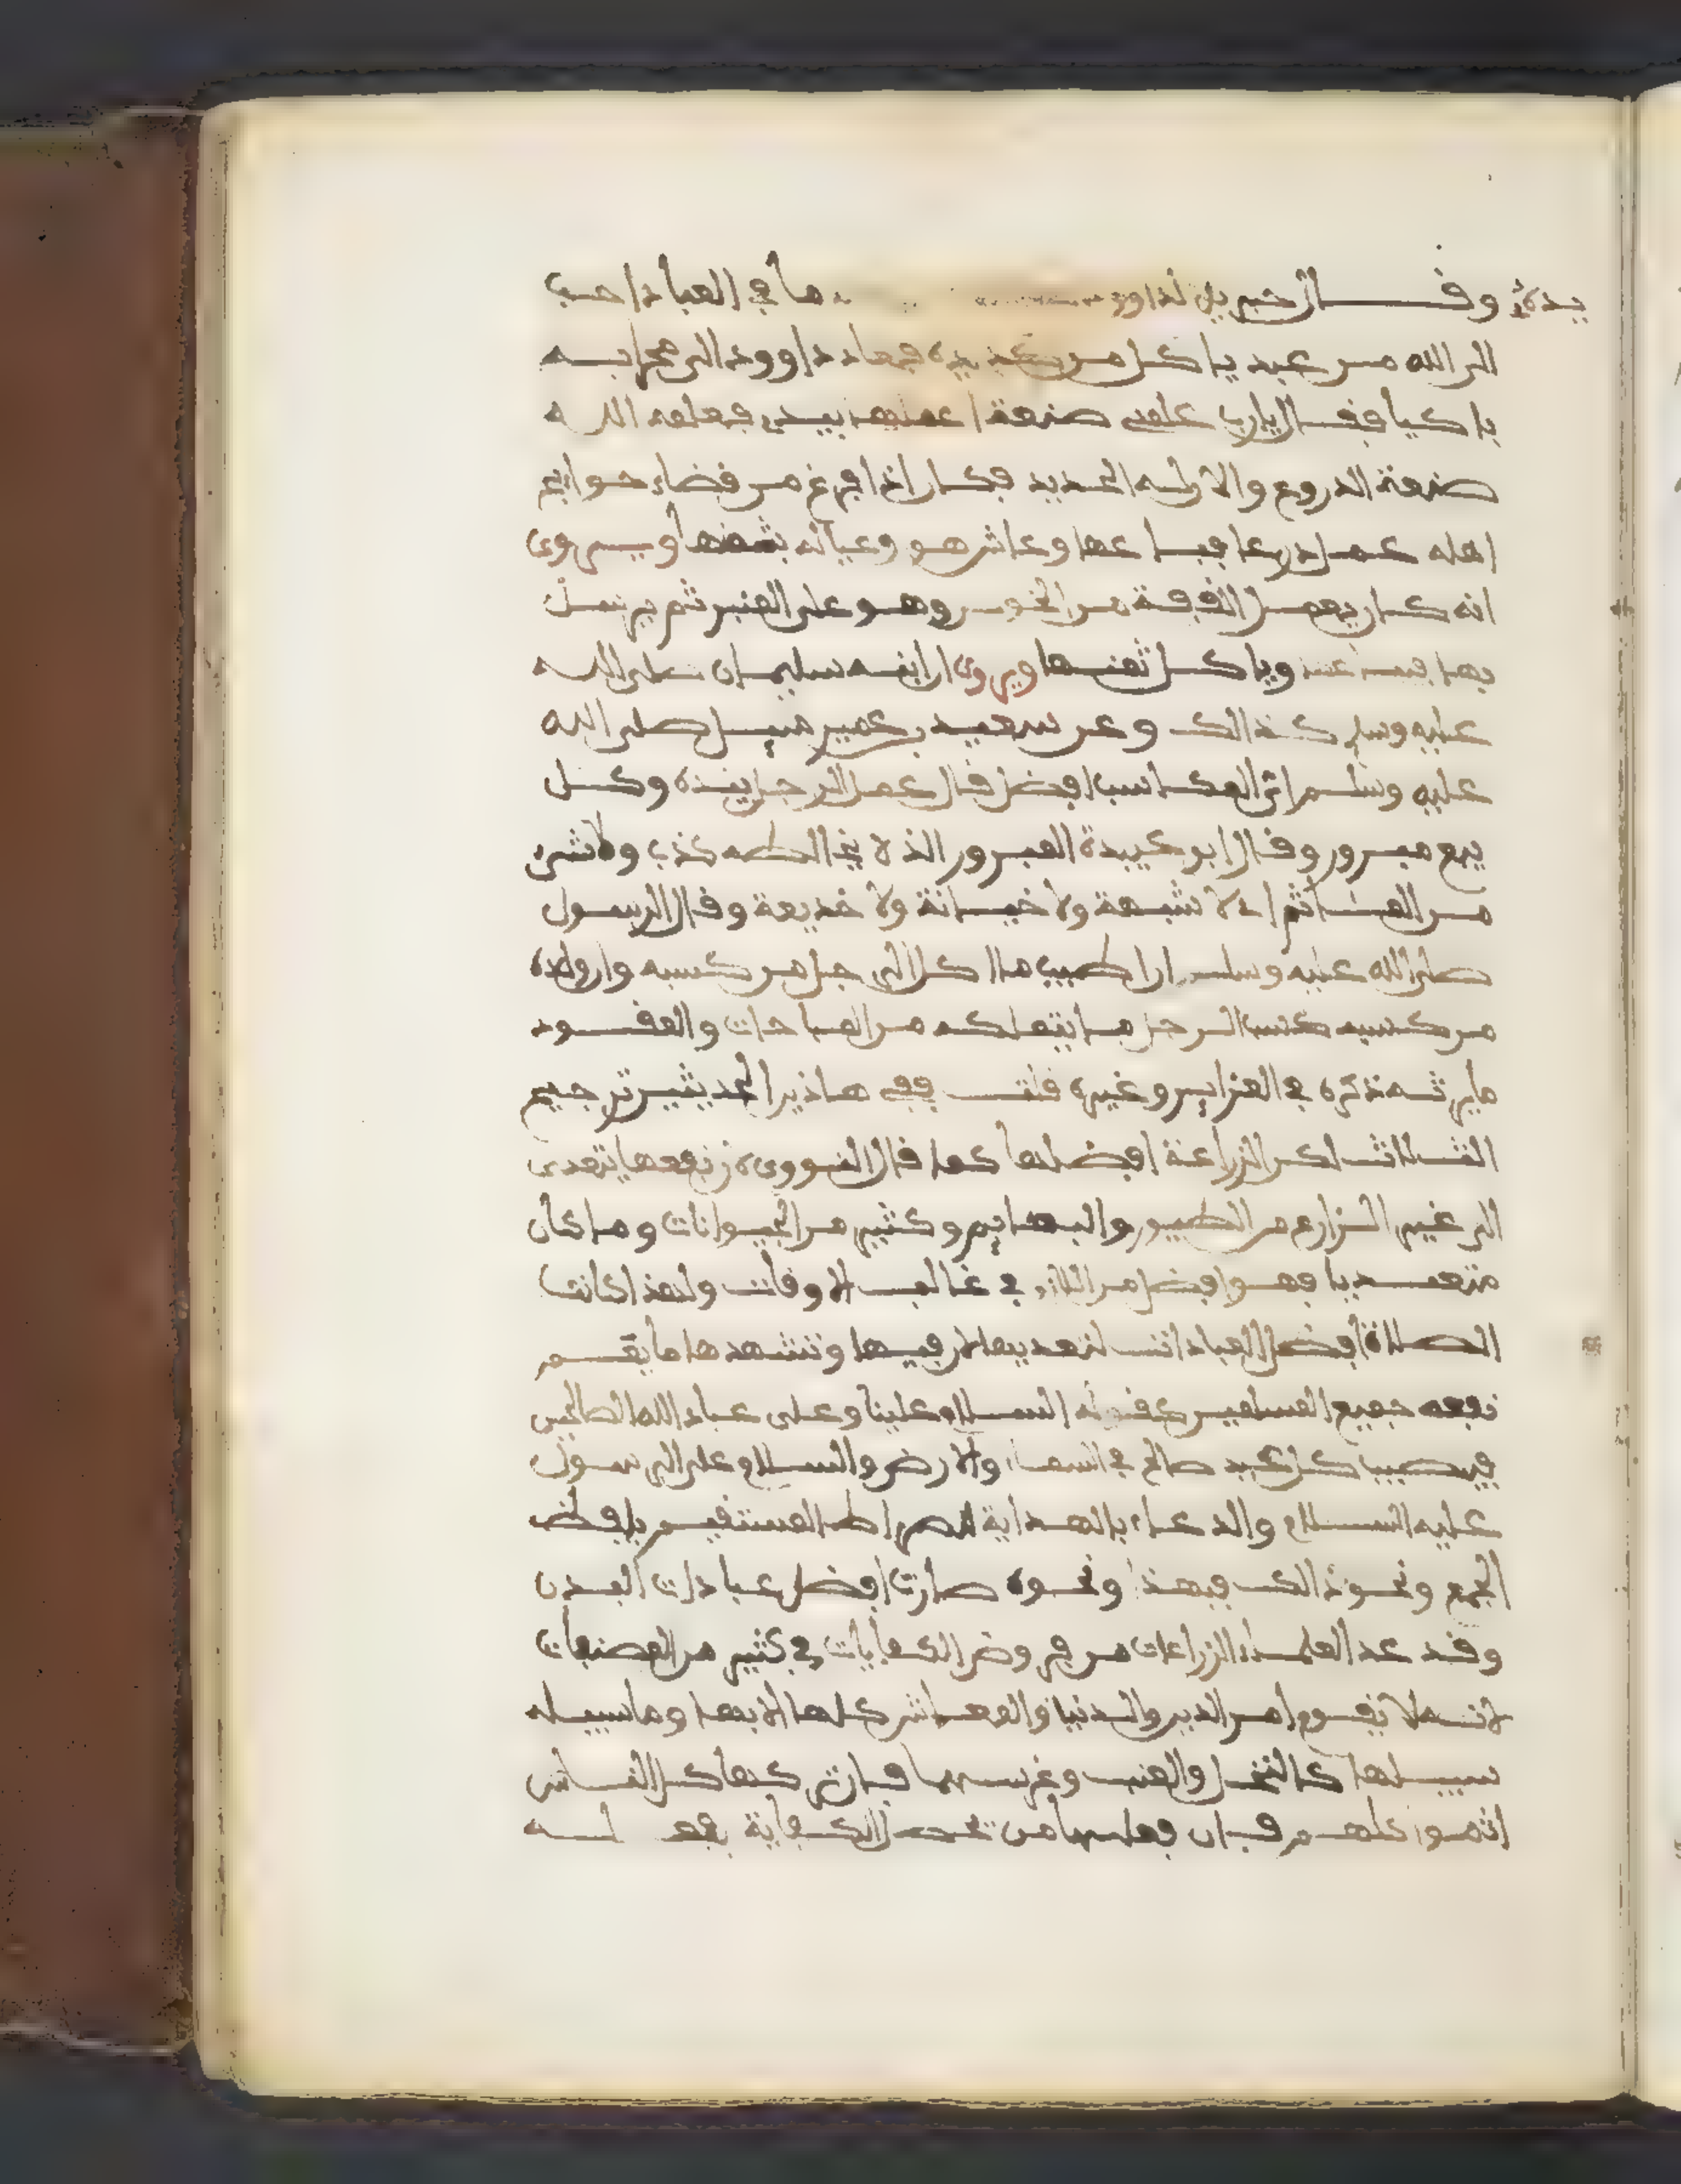 يده وقال جبريل لداوود ما في العباد احب
الى الله من عبد ياكل من كد يده فعاد داوود الى محرابه
باكيا فقال يارب علمني صنعة اعملها بيدي فعلمه الله
صنعة الدروع والان له الحديد فكان اذا فرغ من قضاء حوايج
اهله عمل درعا فباعها وعاش هو وعياله بثمنها ويروى
انه كان يعمل القفة من الخوص وهو على المنبر ثم يرسل
بها وياكل ثمنها ويروى ان ابنه سليمان صلى الله
عليه وسلم كذالك وعن سعيد بن عمير سيل صلى الله
عليه وسلم اي المكاسب افضل قال عمل الرجل بيده وكل
بيع مبرور وقال ابو عبيدة المبرور الذ لا يخالطه كذب ولا شيء
من الماثم اي لا شبهة ولا خيانة ولا خديعة وقال الرسول
صلى الله عليه وسلم ان اطيب ما اكل الرجل من كسبه وان ولده
من كسبه كسب الرجل ما يتملكه من المباحات والعقود
ما يرثه ذكره في العزايز وغيره قلت ففي هاذين الحديثين ترجيح
الثلاث لكن الزراعة افضلها كما قال النووي لان نفعها يتعدى
الى غير الزارع من الطيور والبهايم وكثير من الحيوانات وما كان
متعديا فهو افضل من اللازم في غالب الاوقات ولهذا كانت
الصلاة افضل العبادات لتعديها لان فيها وتشهدها ما يقسم
نفعه جميع المسلمين كقوله السلام علينا وعلى عباد الله الصالحين
فيصيب كل عبد صالح في السماء والارض والسلام على الرسول
عليه السلام والدعاء بالهداية الصراط المستقيم بلفظ
الجمع ونحو ذالك فبهذا ونحوه صارت افضل عبادات البدن
وقد عد العلماء الزراعات من فروض الكفايات في كثير من المصنفات
لانه لا يقوم امر الدين والدنيا والمعاش كلها الا بها وما سبيله
سبيلها كالنخل والعنب وغرسهما فان تركها كل الناس
اثموا كلهم فان فعلها من تحصل الكفاية بفعله